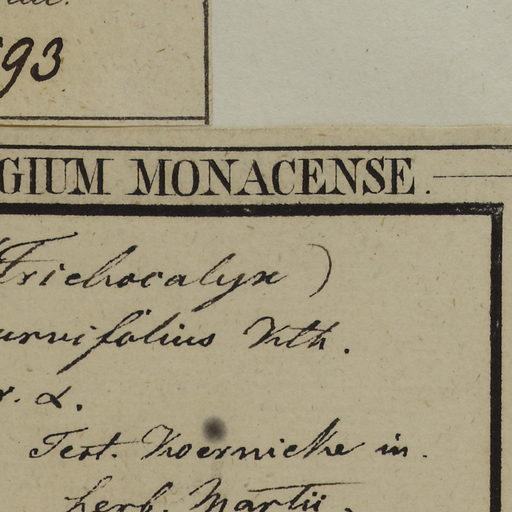 93
GIUM MONACENSE.
(Trichocalyx)
urvifolius Kth.
r. α.
Test. Koernicke in
herb. Martii.